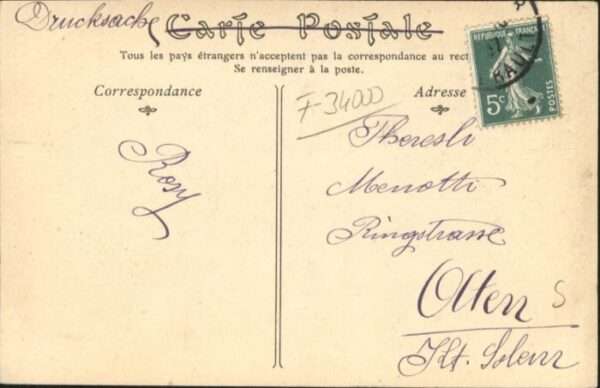 Drucksache
Carte Postale
Tous les pays étrangers n'acceptent pas la correspondance au rect
Se renseigner à la poste.
Correspondance
Adresse
F-34000
RÉPUBLIQUE FRANÇAISE
5c
POSTES
RAULT
Rosy
Theresli
Menotti
Ringstrasse
Olten
S
Kt. Soleur